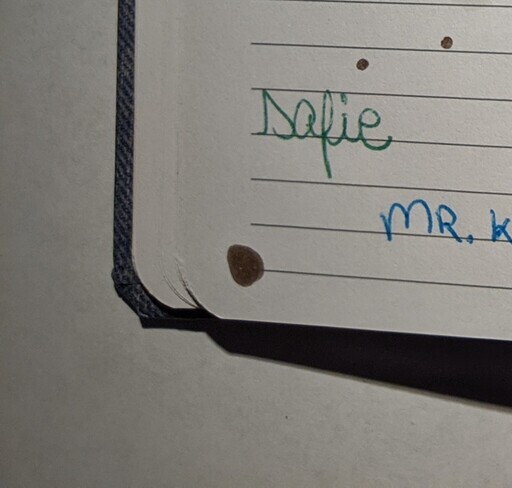 Safie
MR. K